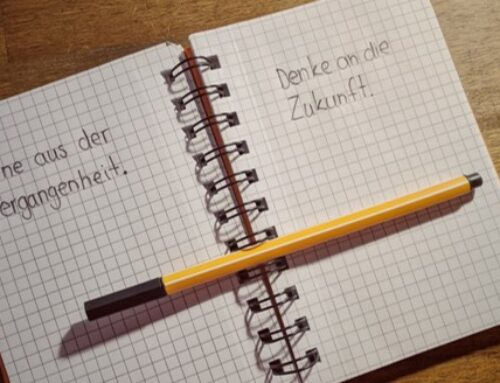 ne aus der
ergangenheit.
Denke an die
Zukunft.